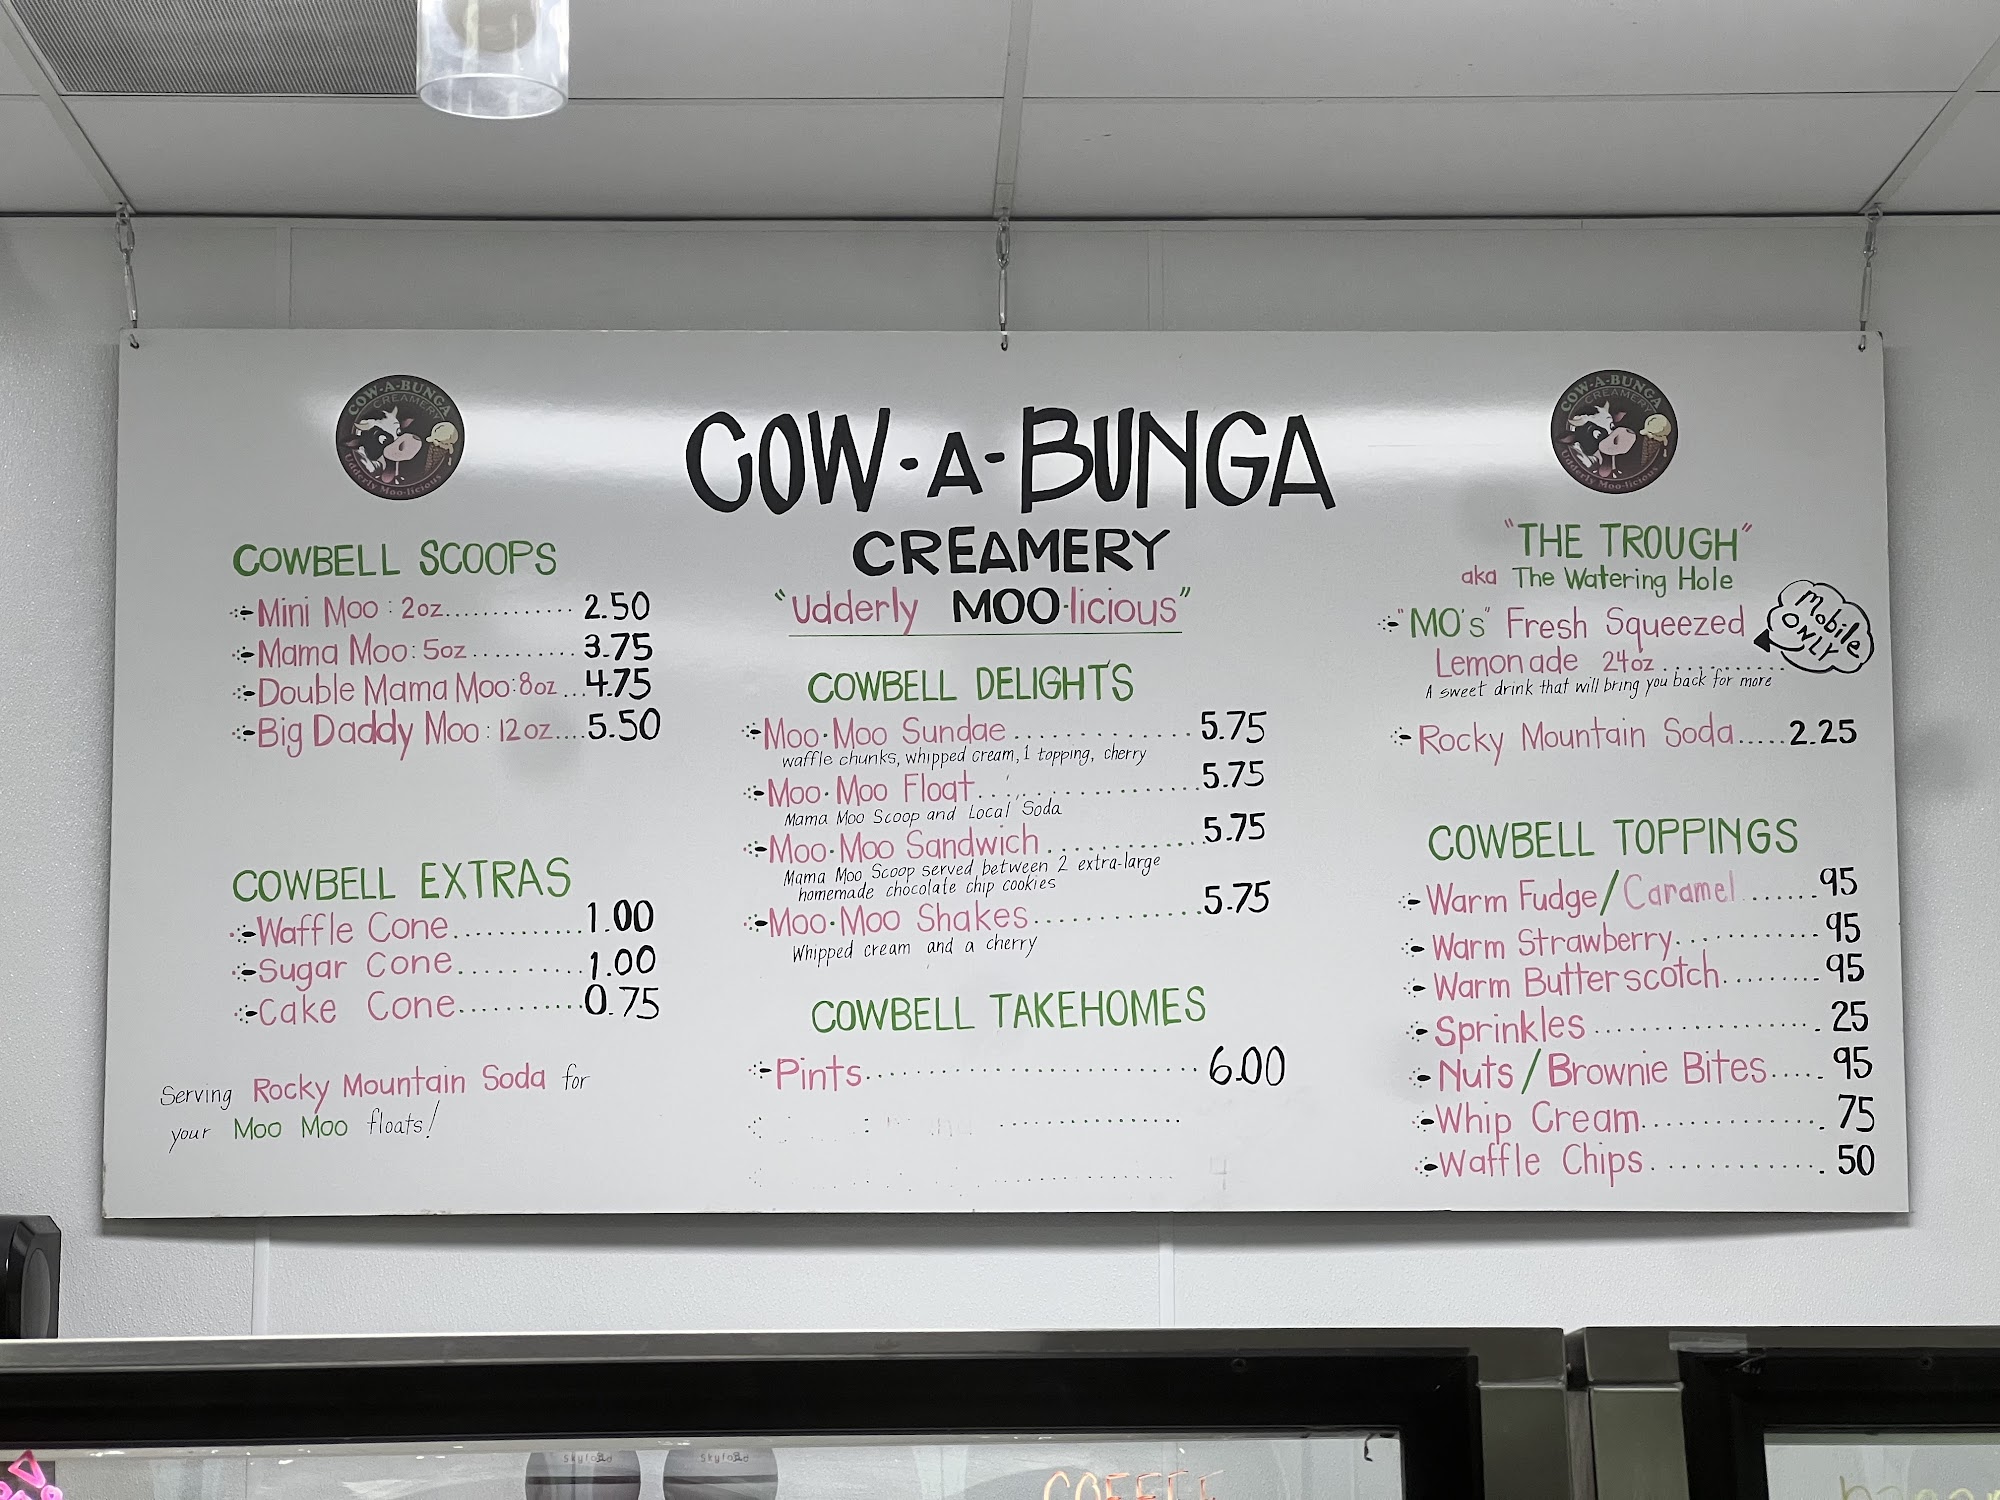 COW-A-BUNGA
CREAMERY
Udderly Moo-licious
COW-A-BUNGA
CREAMERY
Udderly Moo-licious
COW-A-BUNGA
CREAMERY
"Udderly MOO-licious"
COWBELL SCOOPS
Mini Moo: 2oz............ 2.50
Mama Moo: 5oz.......... 3.75
Double Mama Moo: 8oz...4.75
Big Daddy Moo: 12oz....5.50
COWBELL EXTRAS
Waffle Cone...........1.00
Sugar Cone..........1.00
Cake Cone..........0.75
Serving Rocky Mountain Soda for
your Moo Moo floats!
COWBELL DELIGHTS
Moo-Moo Sundae..............5.75
waffle chunks, whipped cream, 1 topping, cherry
Moo-Moo Float..................5.75
Mama Moo Scoop and Local Soda
Moo-Moo Sandwich............5.75
Mama Moo Scoop served between 2 extra-large
homemade chocolate chip cookies
Moo-Moo Shakes..............5.75
Whipped cream and a cherry
COWBELL TAKEHOMES
Pints............................ 6.00
"THE TROUGH"
aka The Watering Hole
"MO's" Fresh Squeezed
Lemonade 24oz..........
Mobile
ONLY
A sweet drink that will bring you back for more
Rocky Mountain Soda.....2.25
COWBELL TOPPINGS
Warm Fudge/Caramel.......95
Warm Strawberry............95
Warm Butterscotch.........95
Sprinkles..................25
Nuts/Brownie Bites.....95
Whip Cream..............75
Waffle Chips.............50
skyfold
skyfold
COFFEE